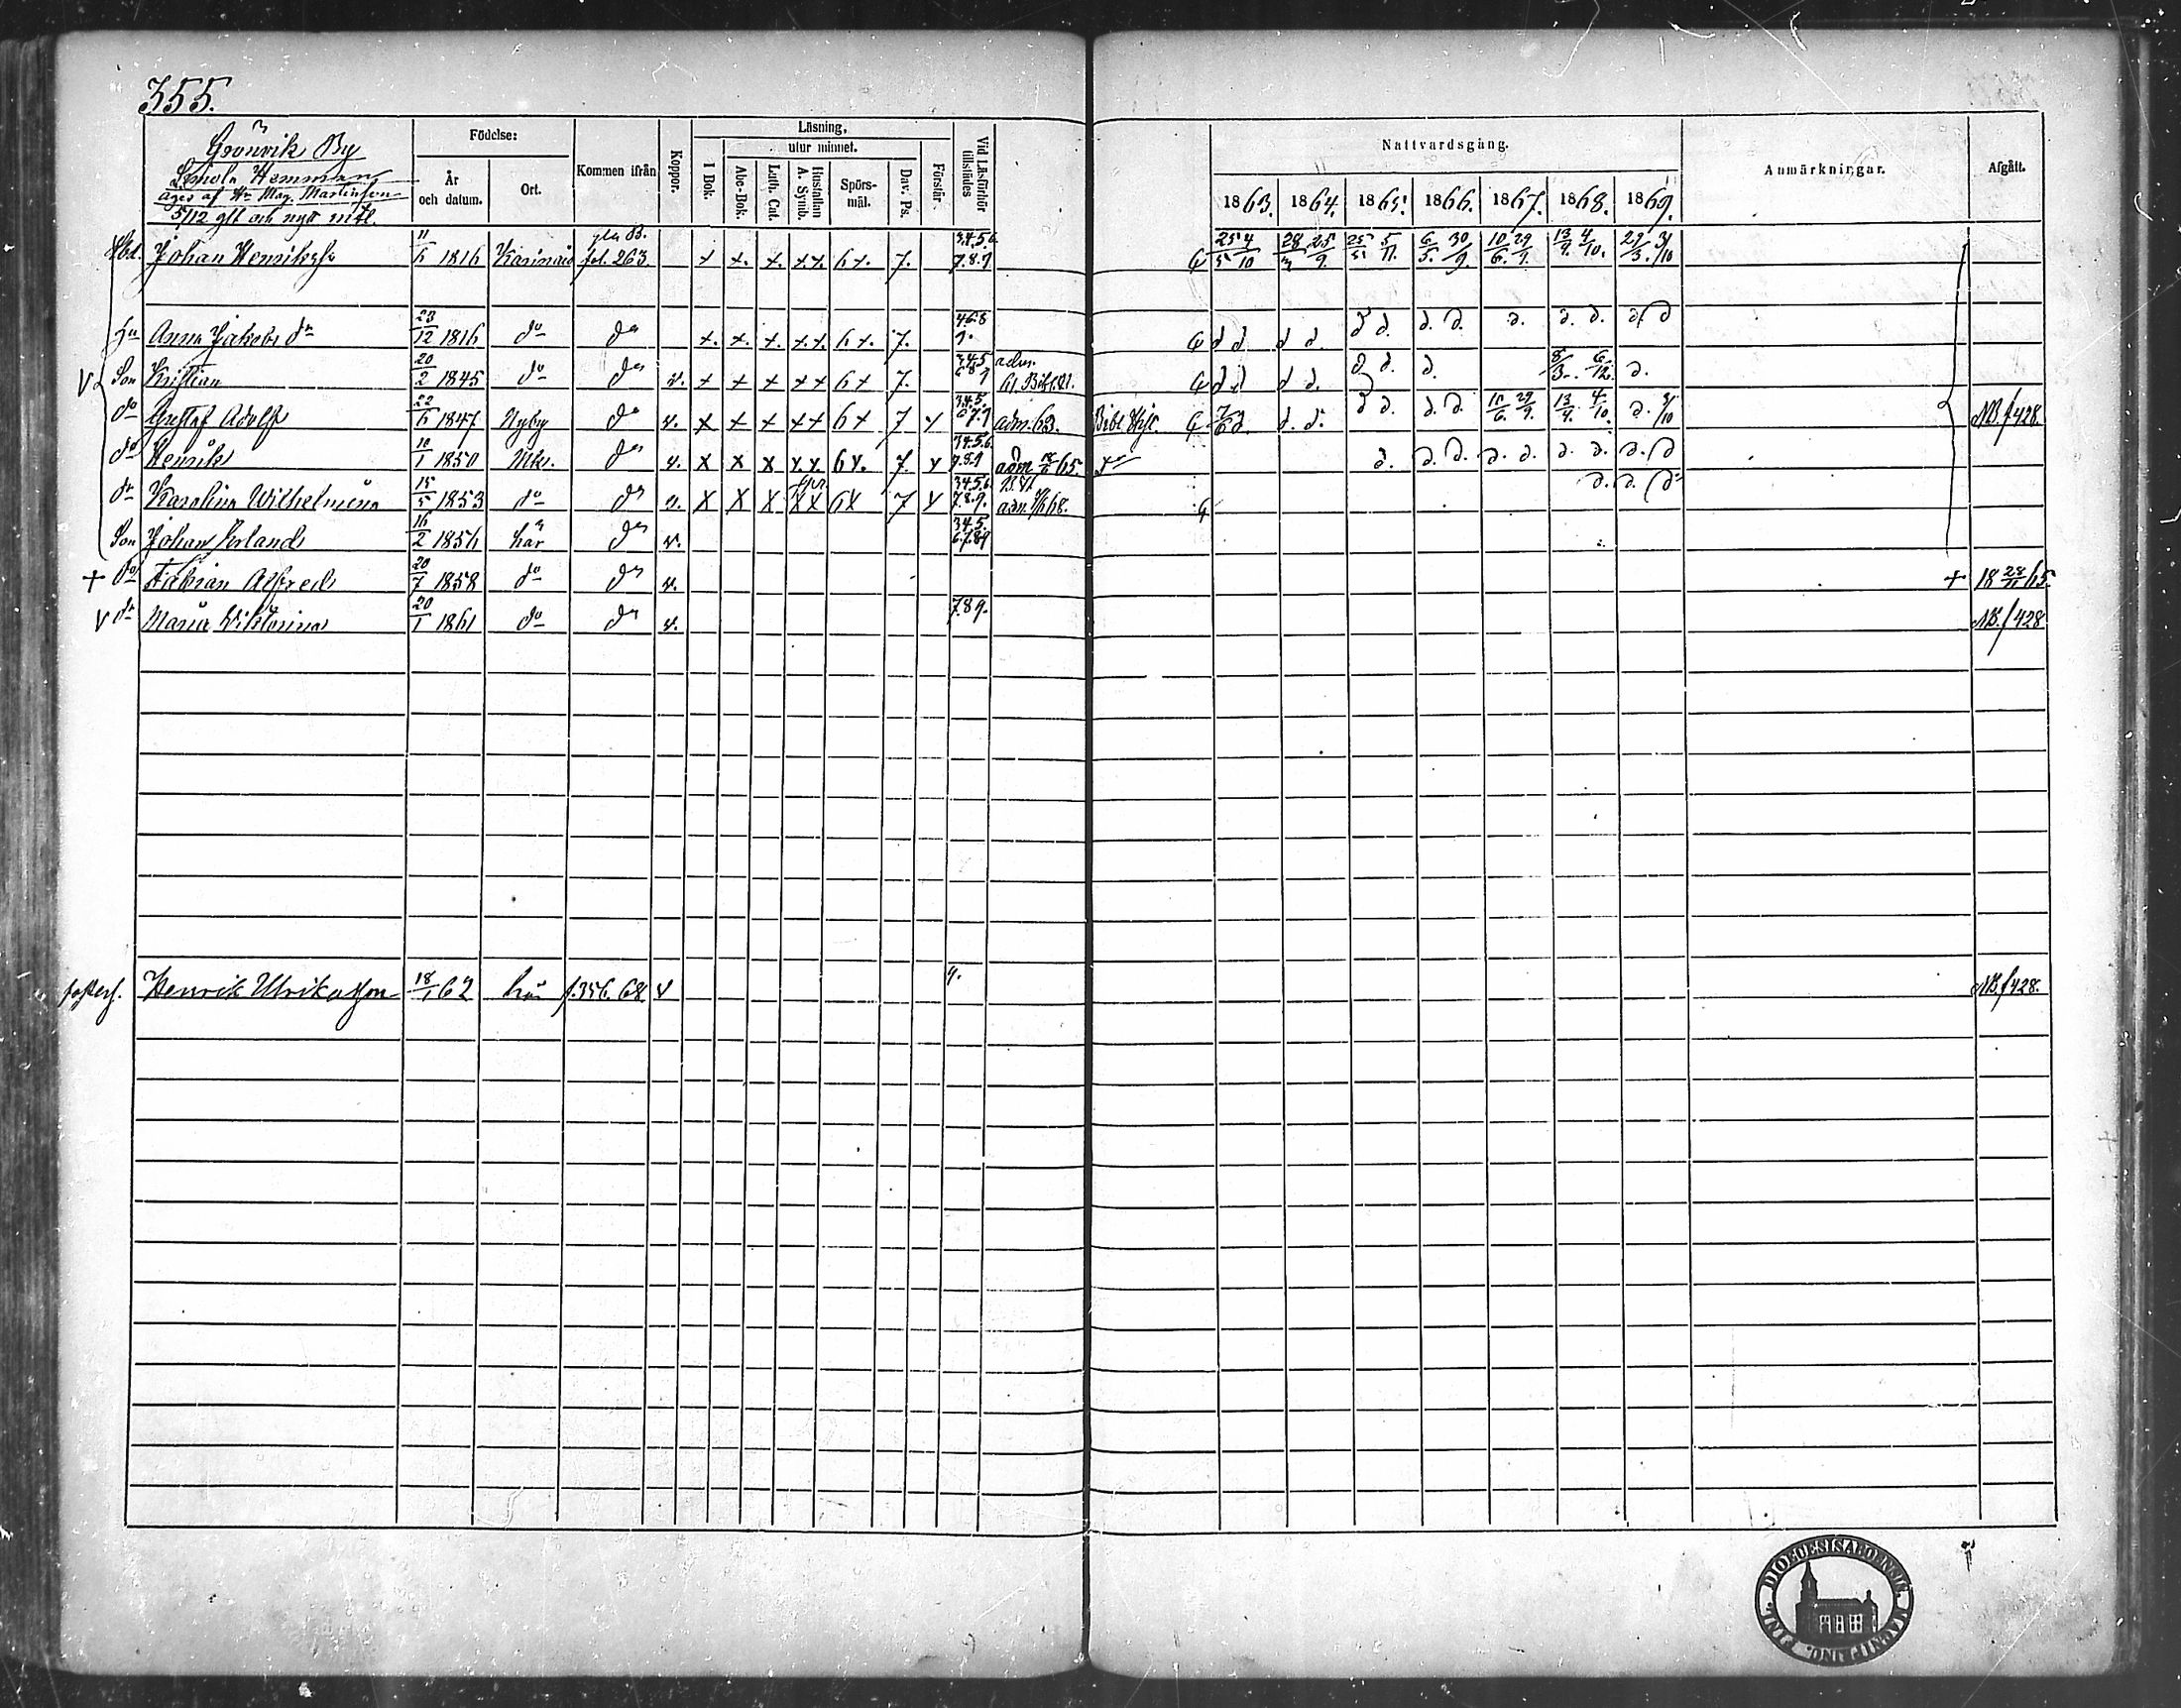 355.
Grönvik By
Hemman
äges af Hr Mag. Martinson
5/12 glt och nytt mtl.
Födelse:
År och datum.
Ort.
Kommen ifrån
Koppor.
Läsning,
I Bok.
utur minnet.
Abc-Bok.
Luth. Cat.
Hustaflan A. Symb.
Spörs-mål.
Dav. Ps.
Förstår.
Vid Läsförhör tillstädes
Nattvardsgång.
1863. 1864. 1865. 1866. 1867. 1868. 1869.
Anmärkningar.
Afgått.
Johan Henriksson 11/6 1816 gla B. fol. 263. x x. x. x.x. 6x. 7. 3.4.5.6. 7.8.9 25/5 4/10 28/3 25/9. 25/5 5/11. 6/5. 30/9. 10/6. 29/9. 13/9. 4/10. 29/3. 3/10
Hu Anna Jakobs dr 23/12 1816 do do x. x. x. x.x. 6x. 7. 4.6.8 9. d d d d. d d. d. d. d. d. d. d. d
Son Kristian 20/2 1845 do do v. x x x x x 6x 7. 3.4.5 6.8.9 adm. d d d d. d d. d. 8/3. 6/12. d.
do Gustaf Adolf 22/6 1847 Nyby do v. x x x x x 6x 7 x 3.4.5. 6.7.9 adm. 63. Bibl. Hist. d. d. d. d d. d. d. 10/6. 29/9. 13/9. 4/10. d. 3/10 NB. f 428.
do Henrik 10/1 1850 do v. x x x x.x. 6x. 7. x 3.4.5.6. 7.8.9 adm 65. d. d. d. d. d. d. d. d. d
dr Karolina Wilhelmina 15/5 1853 do do v. x x x x x 6x 7 x 3.4.5.6. 7.8.9. adm. 68. d. d. d
Son Johan Erland 16/2 1856 här do v. 3.4.5. 6.7.8.9
+ do Fabian Alfred 20/7 1858 do do v. + 18 28/11 65.
v dr Maria Viktorina 20/1 1861 do do v. 7.8.9. NB. f 428
fosters. Henrik Ulrikasson 18/1 62 här f. 356. 68. v 9. NB. f 428.
FINL. DIOECESIS ABOENSIS